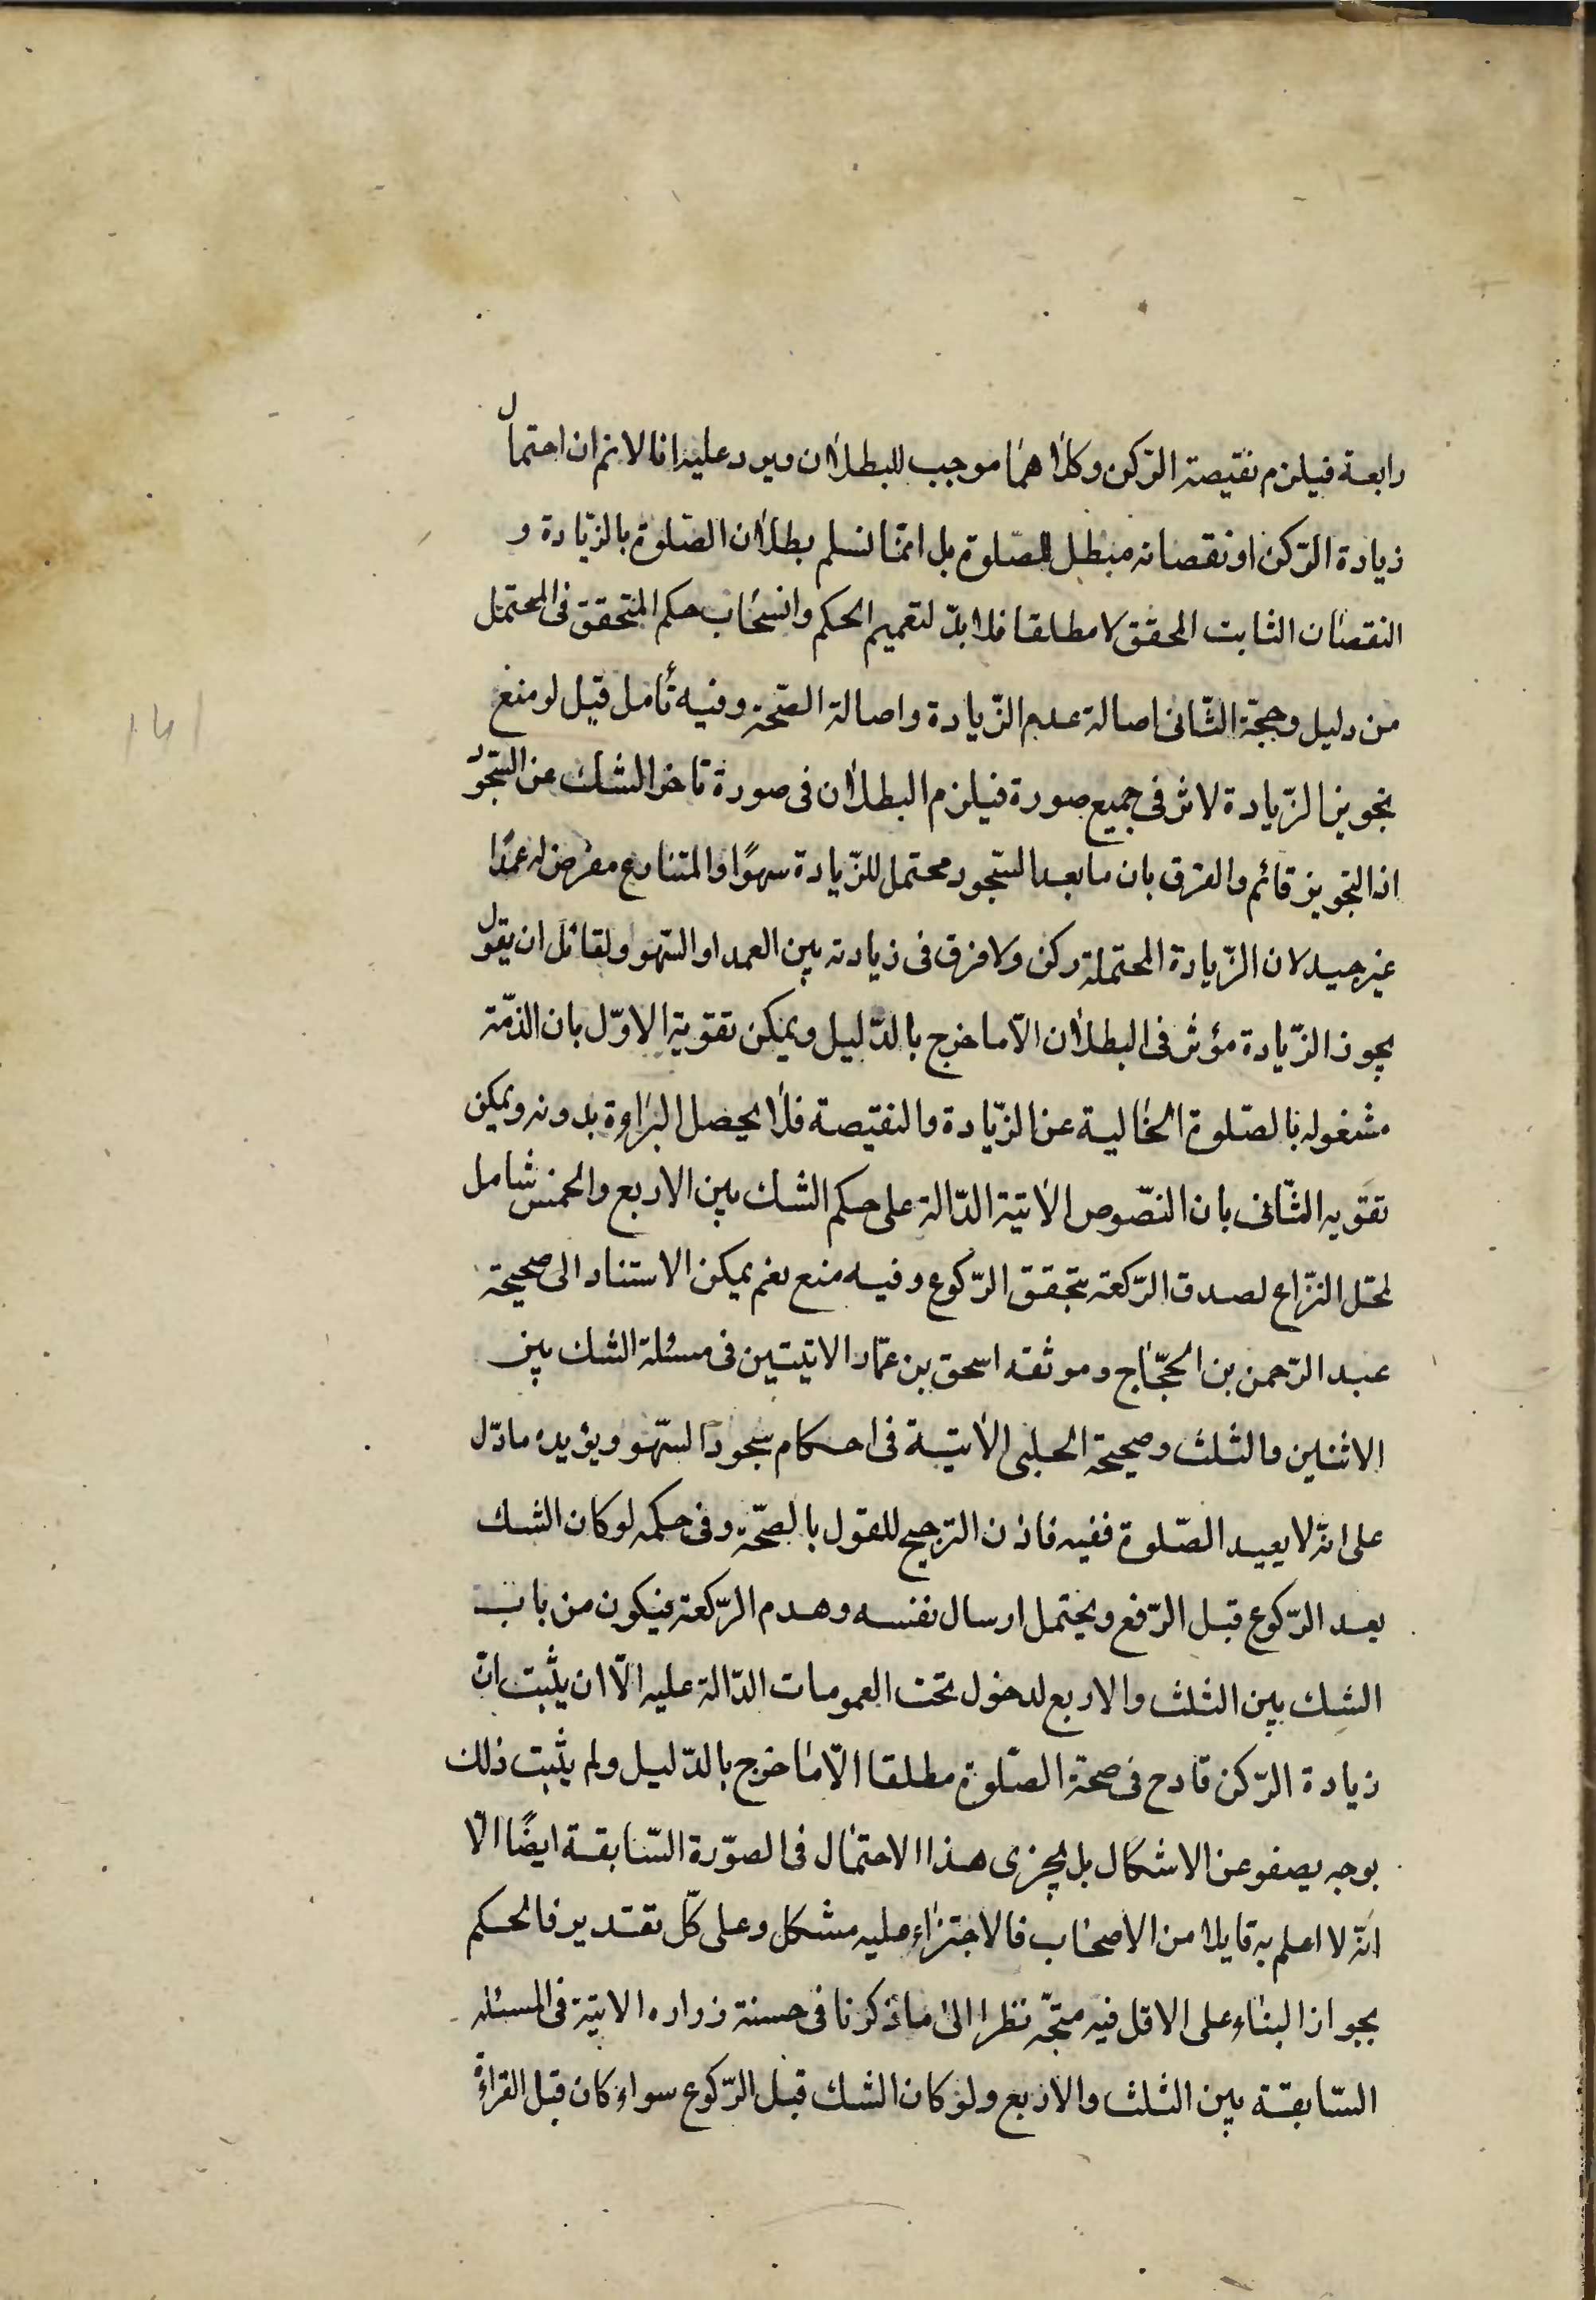 رابعة فيلزم نقيصة الرّكن وكلاهما موجب للبطلان ويرد عليه انا لا نم ان احتمال
زيادة الرّكن او نقصانه مبطل للصّلوة بل انمّا نسلم بطلان الصّلوة بالزّيادة و
النقصان الثابت المحقق لا مطلقا فلا بدّ لتعميم الحكم وانسحاب حكم المتحقق فى المحتمل
من دليل وحجّة الثّانى اصالة عدم الزّيادة واصالة الصّحة وفيه تأمل قيل لو منع
تجويز الزّيادة لاثر فى جميع صورة فيلزم البطلان فى صورة تاخر الشك عن السّجود
اذ التجويز قائم والفرق بان ما بعد السّجود محتمل للزّيادة سهوًا والمتنازع معرض له عمدًا
غير جيد لان الزّيادة المحتملة ركن ولا فرق فى زيادته بين العمد او السّهو ولقائل ان يقول
يجوز الزّيادة مؤثر فى البطلان الّا ما خرج بالدّليل ويمكن تقوية الاوّل بان الذمّة
مشغوله بالصّلوة الخالية عن الزّيادة والنقيصة فلا يحصل البراءة بدونه ويمكن
تقويه الثّانى بان النصّوص الاتية الدّالة على حكم الشك بين الاربع والخمس شامل
لمحّل النزّاع لصدق الرّكعة بتحقق الرّكوع وفيه منع نعم يمكن الاستناد الى صحيحة
عبد الرّحمن بن الحجّاج وموثقه اسحق بن عمّار الاتيتين فى مسئلة الشك بين
الاثنين والثلث وصحيحة الحلبى الاتية فى احكام سجود السّهو ويؤيده ما دّل
على انّه لا يعيد الصّلوة فقيه فاذن الترجيح للقول بالصّحة وفى حكمه لو كان الشك
بعد الرّكوع قبل الرّفع ويحتمل ارسال نفسه وهدم الرّكعة فيكون من باب
الشك بين الثلث والاربع لدخول تحت العمومات الدّالة عليه الّا ان يثبت انّ
زيادة الرّكن قادح فى صحة الصّلوة مطلقا الّا ما خرج بالدّليل ولم يثبت ذلك
بوجه يصفو عن الاشكال بل يجزى هذا الاحتمال فى الصوّرة السّابقة ايضًا الّا
انّه لا اعلم به قايلا من الاصحاب فالاجتزاء عليه مشكل وعلى كلّ تقدير فالحكم
بجواز البناء على الاقل فيه متجّه نظرا الى ما ذكرنا فى حسنة زراره الاتية فى المسئله
السّابقة بين الثلث والاربع ولو كان الشك قبل الرّكوع سواء كان قبل القراءة